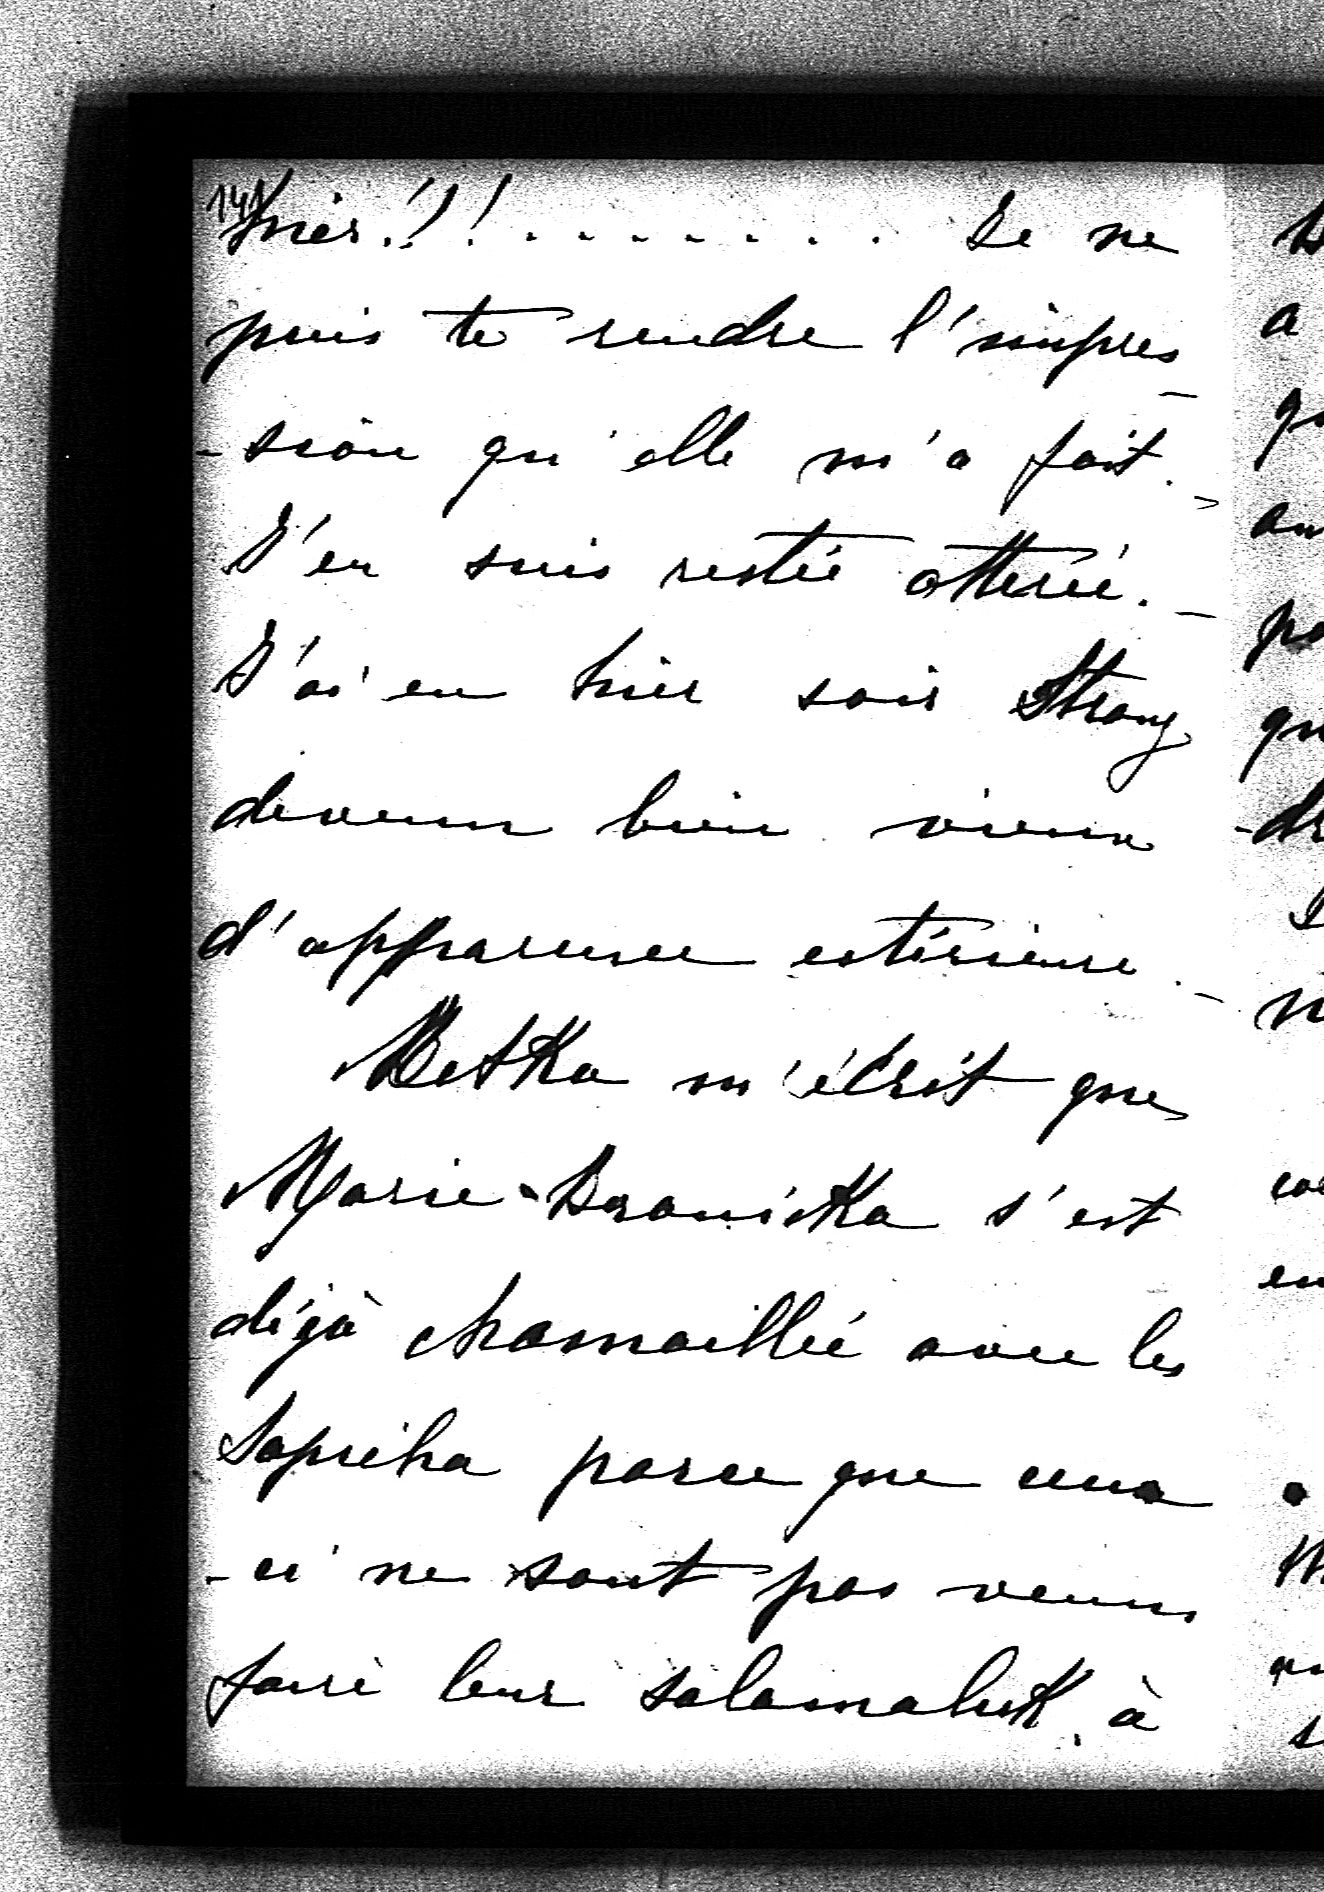 141
hier!!! . . . . . . . . Je ne
puis te rendre l'impres-
-sion qu'elle m'a fait. -
J'en suis restée attérée. -
J'ai eu hier soir Strong
devenu bien vieux
d'apparence extérieure. -
Betka m'écrit que
Marie-Branicka s'est
déjà chamaillée avec les
Sapieha parce que ceux
-ci ne sont pas venus
faire leur salamalek à